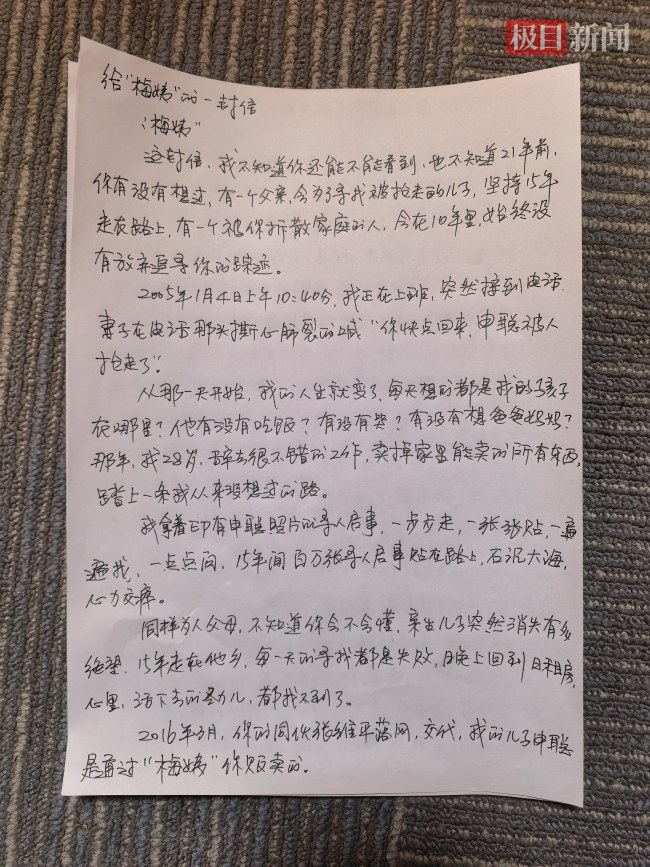 极目新闻
给“梅姨”的一封信
“梅姨”
这封信,我不知道你还能不能看到,也不知道21年前,
你有没有想过,有一个父亲,会为了寻找被抢走的儿子,坚持15年
走在路上,有一个被你拆散家庭的人,会在10年里,始终没
有放弃追寻你的踪迹。
2005年1月4日上午10:40分,我正在上班,突然接到电话.
妻子在电话那头撕心肺裂的喊“你快点回来,申聪被人
抢走了”.
从那一天开始,我的人生就变了,每天想的都是我的孩子
在哪里?他有没有吃饭?有没有哭?有没有想爸爸妈妈?
那年,我28岁,辞去很不错的工作,卖掉家里能卖的所有东西,
踏上一条我从来没想过的路。
我拿着印有申聪照片的寻人启事,一步步走,一张张贴,一遍
遍找,一点点问,15年间百万张寻人启事贴在路上,石沉大海,
心力交瘁。
同样为人父母,不知道你会不会懂,亲生儿子突然消失有多
绝望,15年走在他乡,每一天的寻找都是失败,晚上回到日租房,
心里,活下去的圣力儿,都找不到了。
2016年3月,你的同伙张维平落网,交代,我的儿子申聪
是通过“梅姨”你贩卖的.